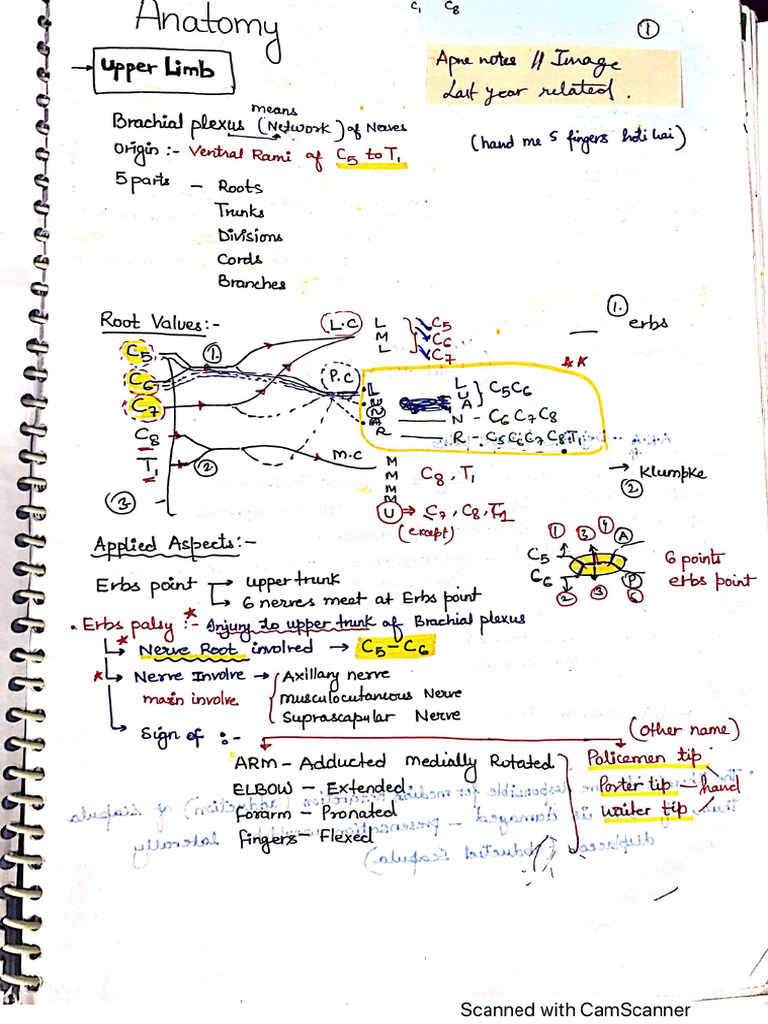 C, C8
Anatomy
①
→ Upper Limb
Apne notes // Image
Last year related.
means
Brachial plexus (Network) of Nerves
(hand me 5 fingers hoti hai)
Origin :- Ventral Rami of C5 to T1
5 parts - Roots
Trunks
Divisions
Cords
Branches
Root Values:-
①.
— erbs
C5
C6
C7
C8
T1
①.
②
③
L.C
L
M
L
C5
C6
C7
P.C
L
U
N
A
R
L
U
A
} C5C6
N - C6 C7 C8
R - C5C6C7C8T1
→ Klumpke
②
M.C
M
M
M
M
U → C7, C8, T1
C8, T1
(except)
Applied Aspects:-
Erbs point → upper trunk
→ 6 nerves meet at Erbs point
C5
C6
① ③ ④ A
② ③ P ⑥
6 points
erbs point
• Erbs palsy :- Injury to upper trunk of Brachial plexus
→ Nerve Root involved → C5-C6
→ Nerve Involve → Axillary nerve
main involve
musculocutaneous Nerve
Suprascapular Nerve
→ Sign of :-
(other name)
ARM - Adducted Medially Rotated
ELBOW - Extended
Forarm - Pronated
Fingers - Flexed
Policemen tip
Porter tip — hand
Waiter tip
Scanned with CamScanner